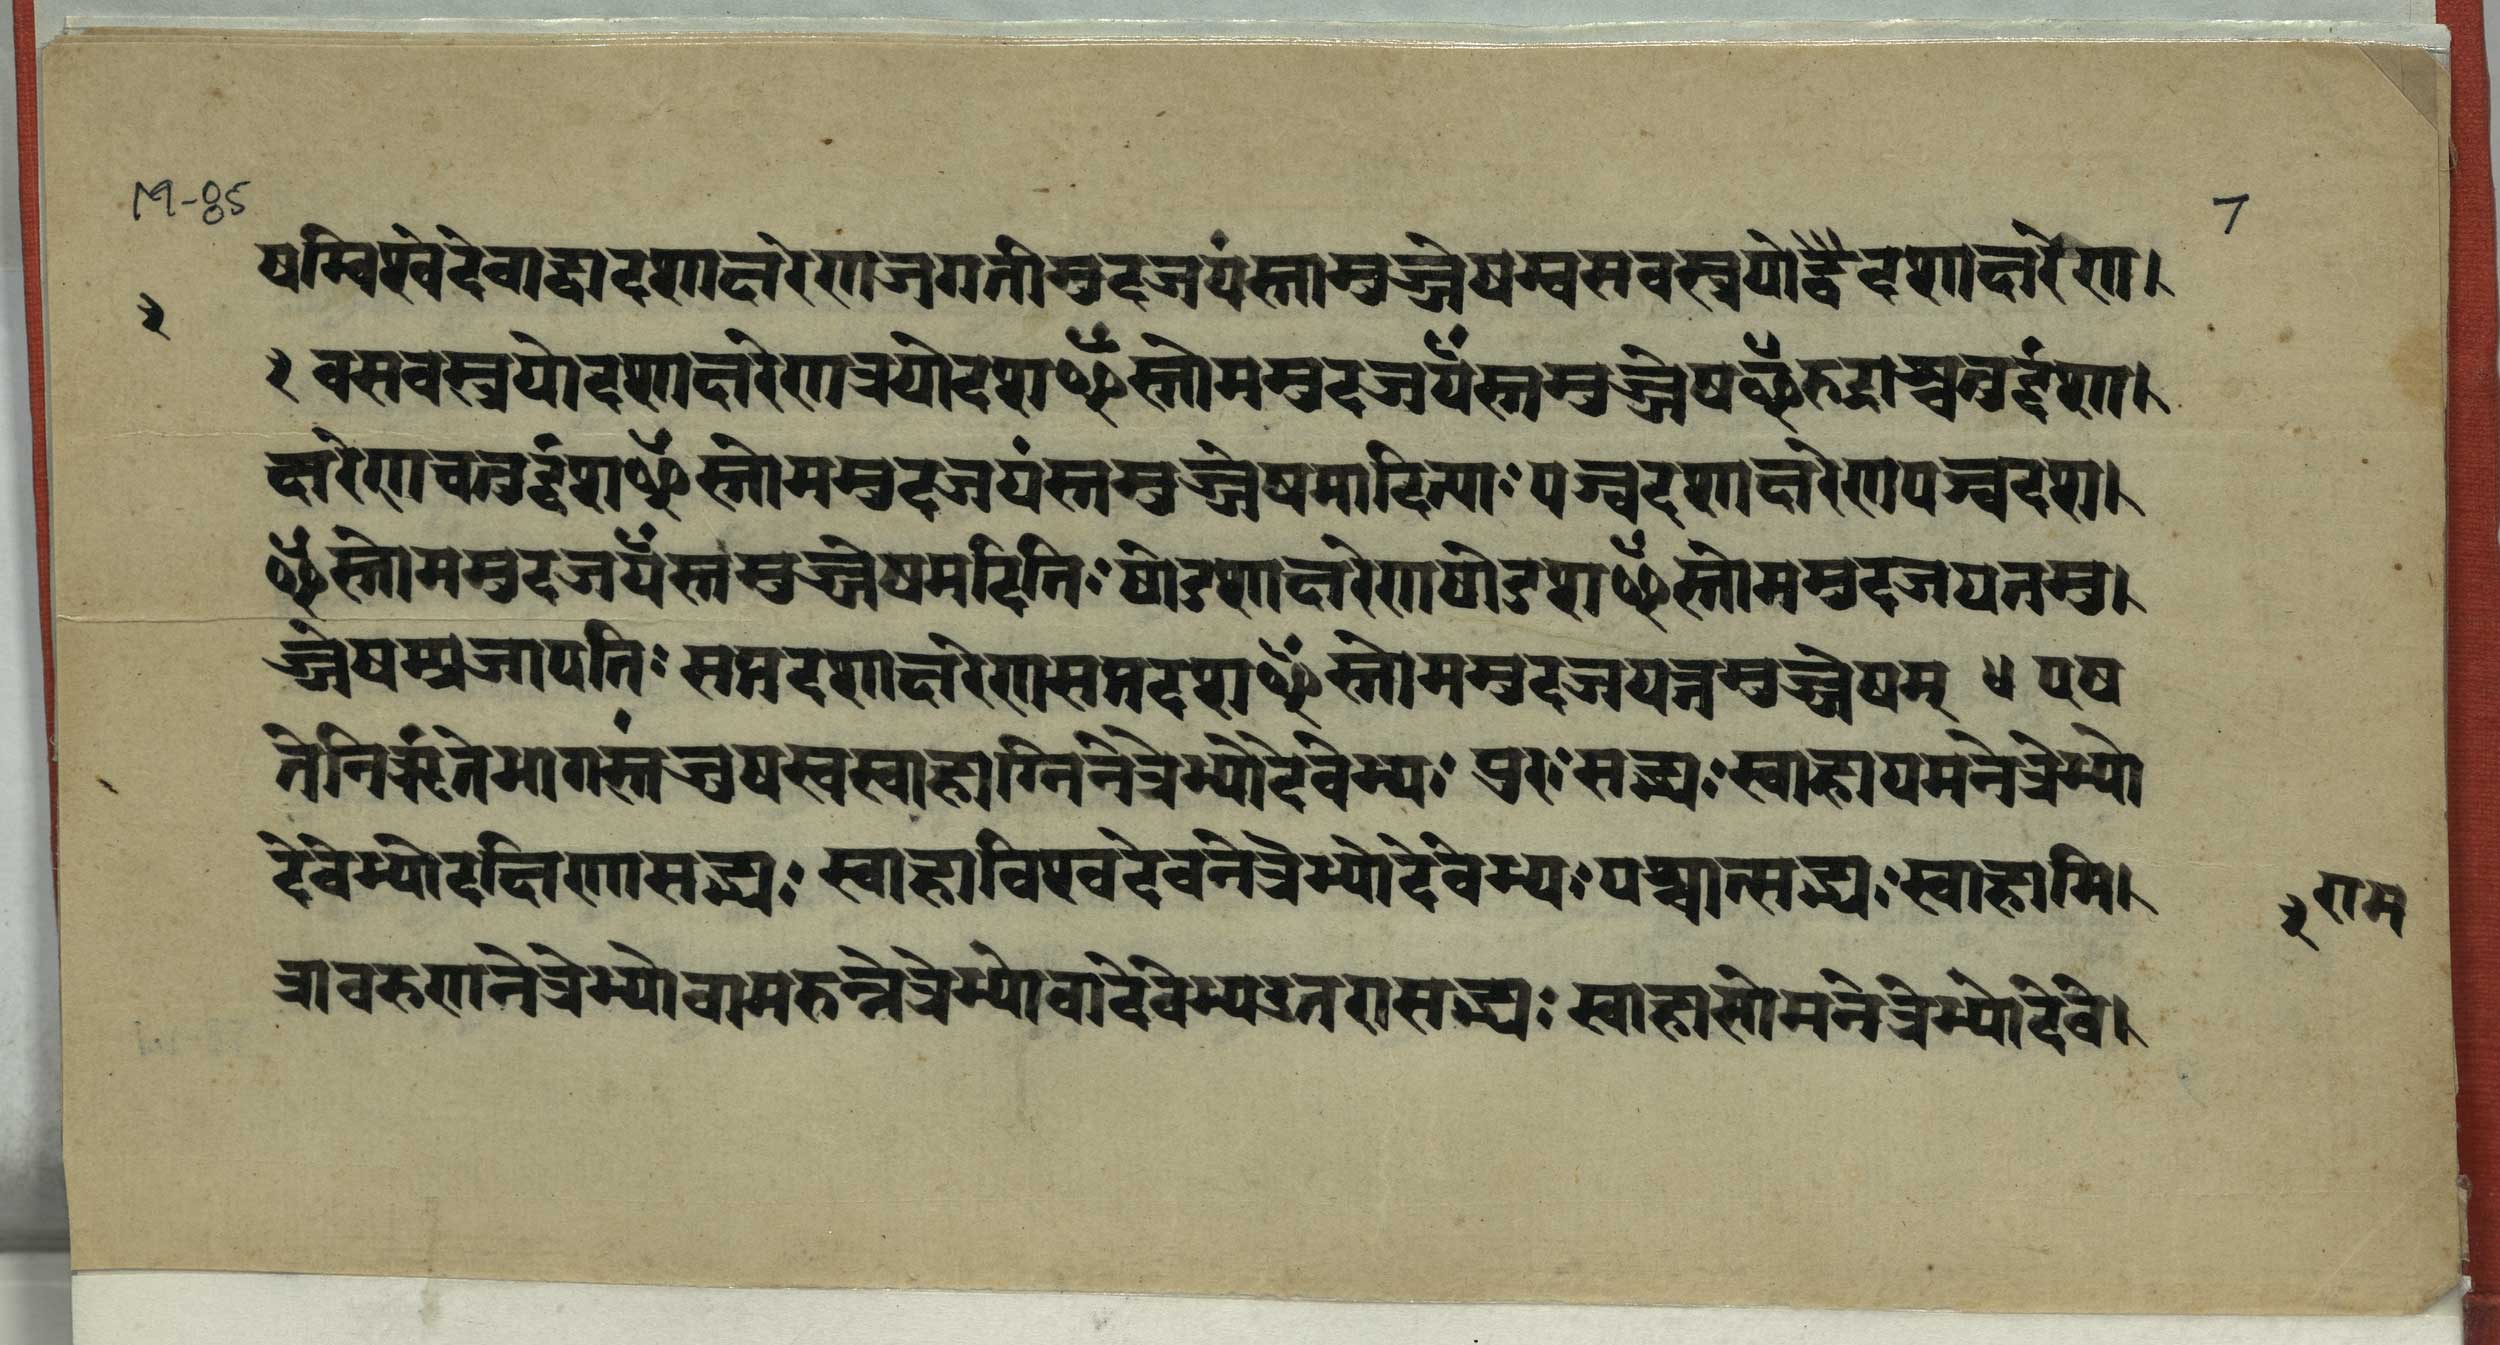 M-85
7
षम्विश्वेदेवाद्वादशाक्षरेणजगतीमुदजयंस्तामुज्जेषम्वसवस्त्रयोर्द्वैदशाक्षरेण।
३
३ वसवस्त्रयोदशाक्षरेणत्रयोदशᳪस्तोममुदजयँस्तमुज्जेषᳪरुद्राश्चतुर्दृंश।
क्षरेणचतुर्दृंशᳪस्तोममुदजयंस्तमुज्जेषमादित्याः पञ्चदशाक्षरेणपञ्चदश।
ᳪस्तोममुदजयँस्तमुज्जेषमदितिः षोडशाक्षरेणषोडशᳪस्तोममुदजयतमु।
ज्जेषम्प्रजापतिः सप्तदशाक्षरेणसप्तदशᳪस्तोममुदजयत्तमुज्जेषम् ४ एष
तेनिर्ऋतेभागस्तंजुषस्वस्वाहाग्निनेत्रेभ्योदेवेभ्यः पुरःसद्भ्यःस्वाहायमनेत्रेभ्यो
देवेभ्योदक्षिणासद्भ्यः स्वाहाविश्वदेवनेत्रेभ्योदेवेभ्यःपश्चात्सद्भ्यःस्वाहामि।
३ राम
त्रावरुणनेत्रेभ्योवामरुन्नेत्रेभ्योवादेवेभ्यउत्तरासद्भ्यः स्वाहासोमनेत्रेभ्योदेवे।